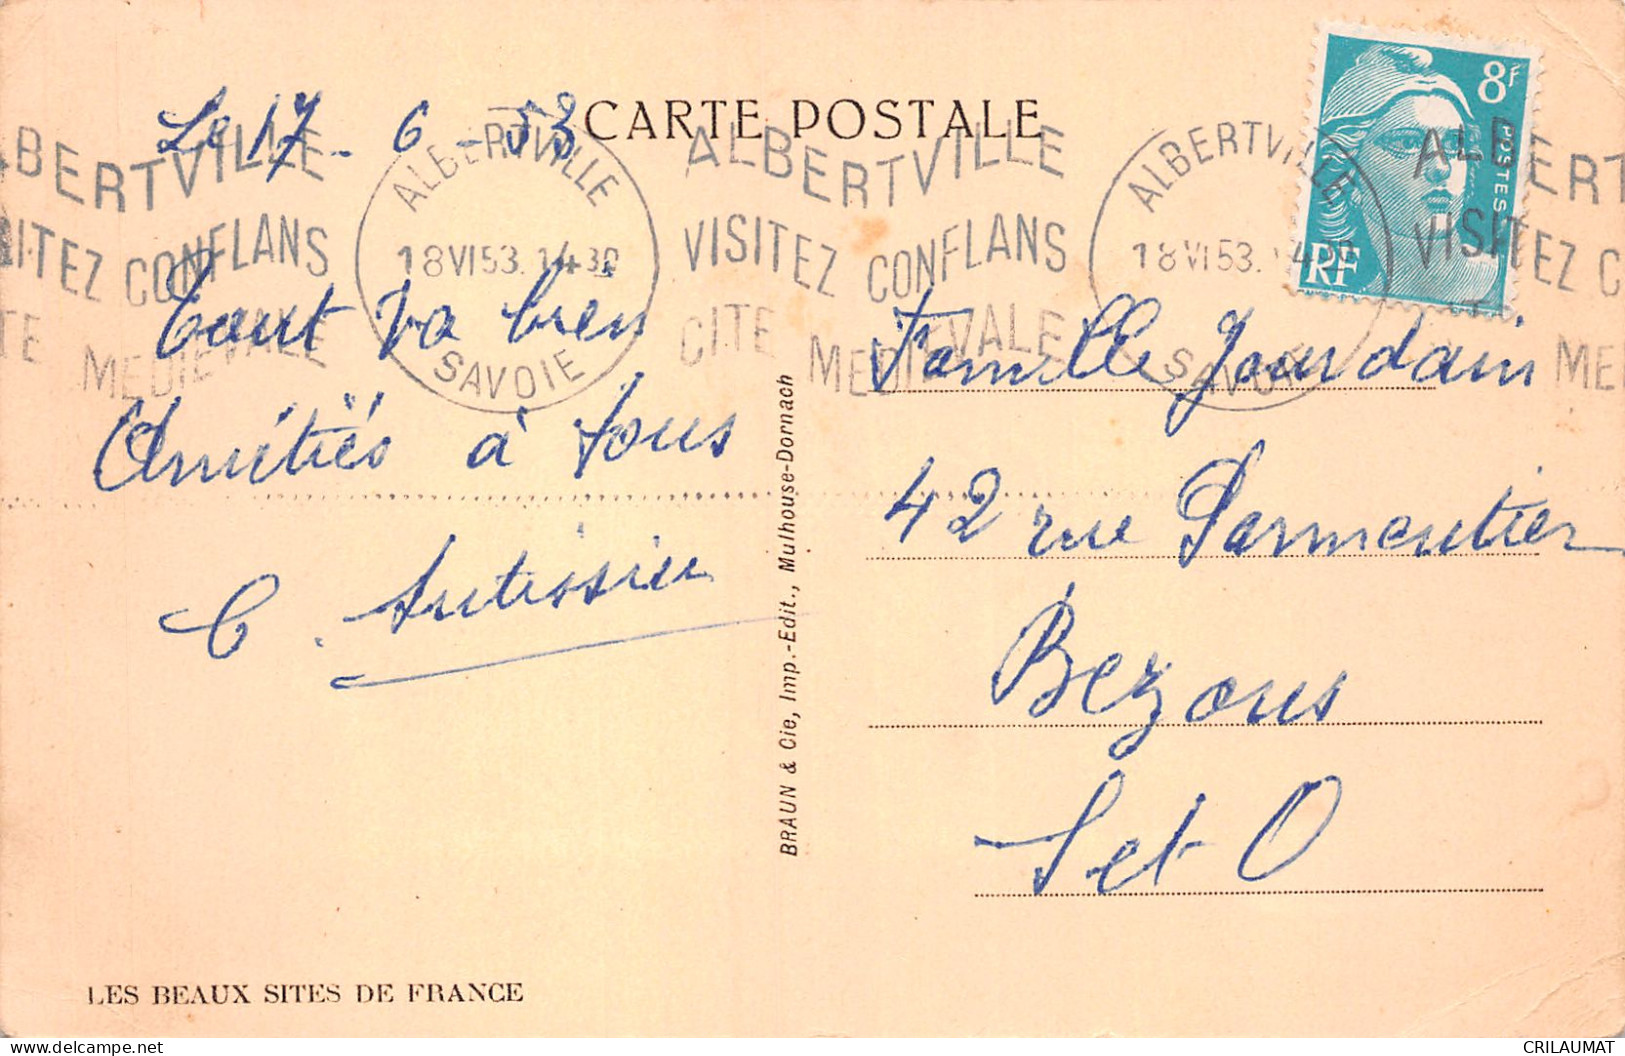 CARTE POSTALE
Le 17 - 6 - 53
ALBERTVILLE
VISITEZ CONFLANS
CITE MEDIEVALE
ALBERTVILLE
18 VI 53. 14 30
SAVOIE
ALBERTVILLE
VISITEZ CONFLANS
CITE MEDIEVALE
ALBERTVILLE
18 VI 53. 14 30
SAVOIE
8F
POSTES
RF
Tout va bien
Amitiés à tous
C. Autissier
BRAUN & Cie, Imp.-Edit., Mulhouse-Dornach
Famille Jourdain
42 rue Parmentier
Bezons
S et O
LES BEAUX SITES DE FRANCE
CRILAUMAT